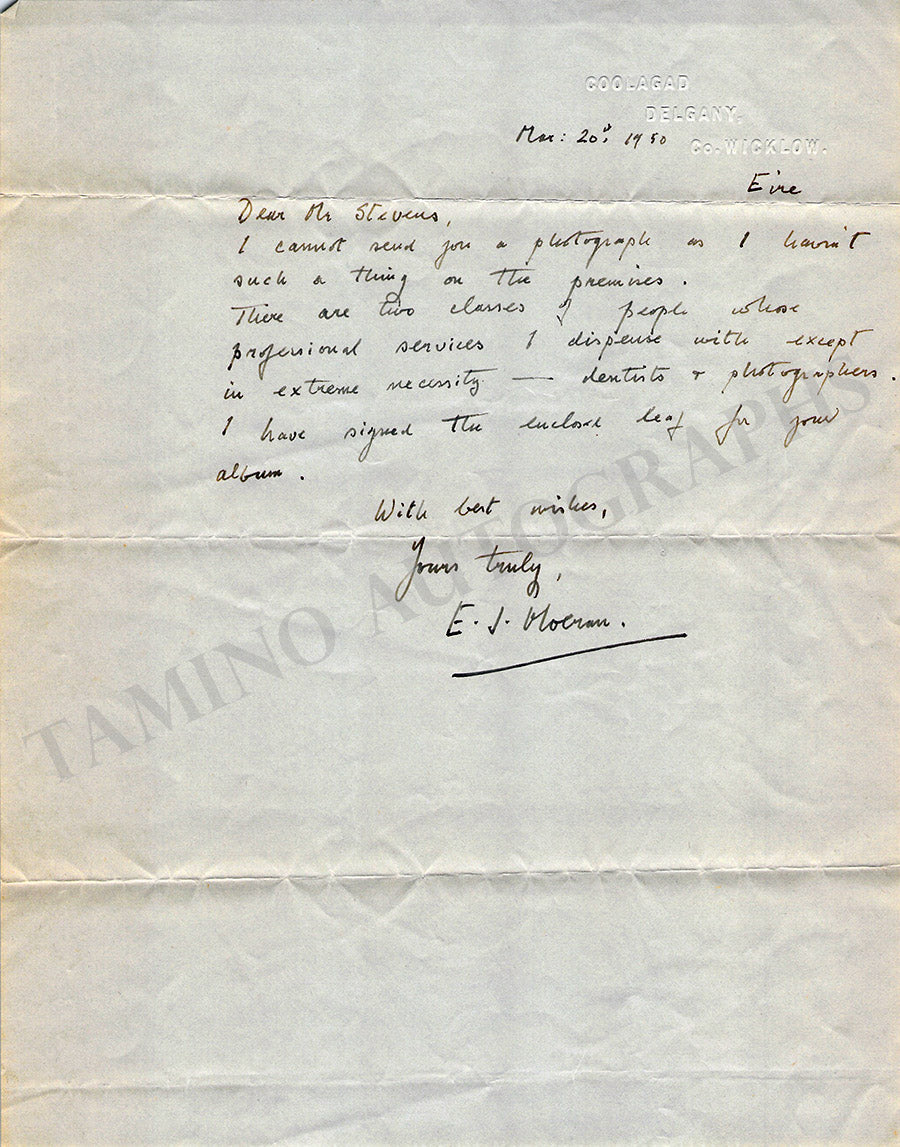 COOLAGAD
DELGANY,
Co. WICKLOW.
Mar: 20th, 1950
Eire
Dear Mr Stevens,
I cannot send you a photograph as I haven't
such a thing on the premises.
There are two classes of people whose
professional services I dispense with except
in extreme necessity — dentists & photographers.
I have signed the enclosed leaf for your
album.
With best wishes,
Yours truly,
E. J. Moeran.
TAMINO AUTOGRAPHS